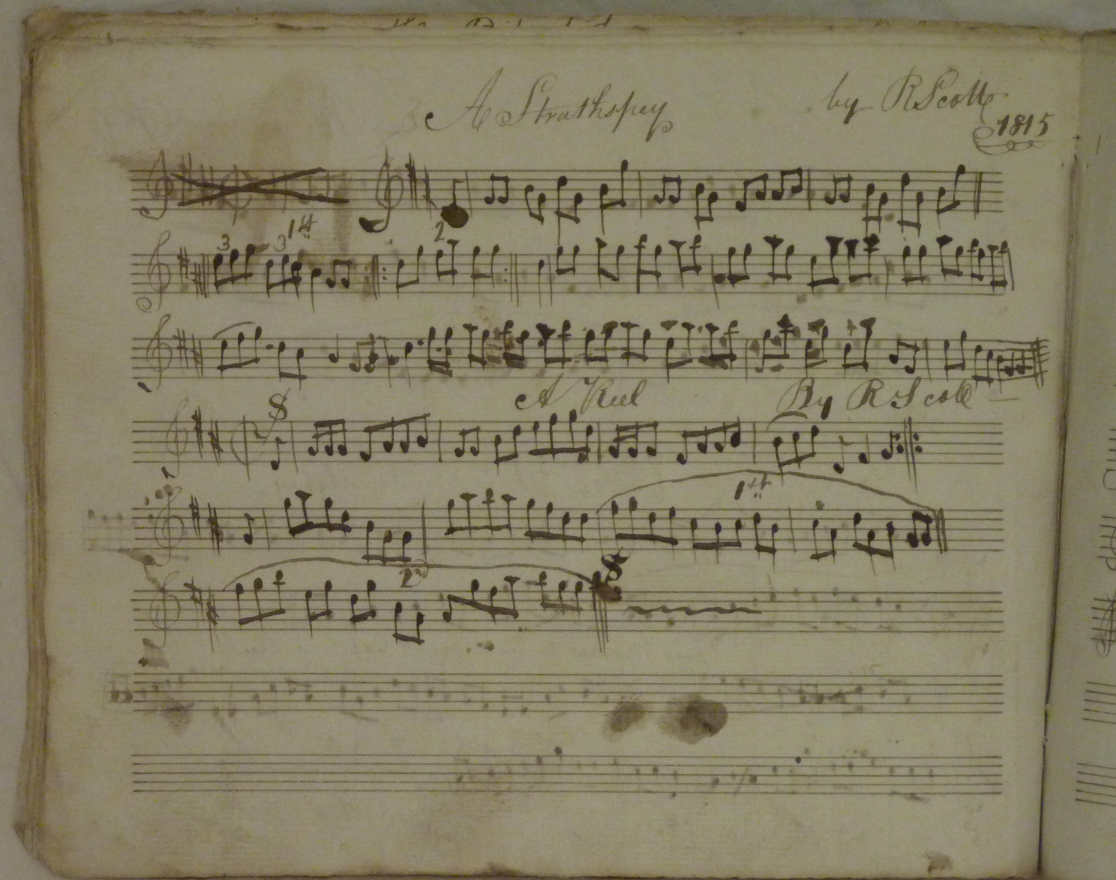 A Strathspey by R Scott
1815
1st
3 3 2
A Reel By R Scott
1st
2d